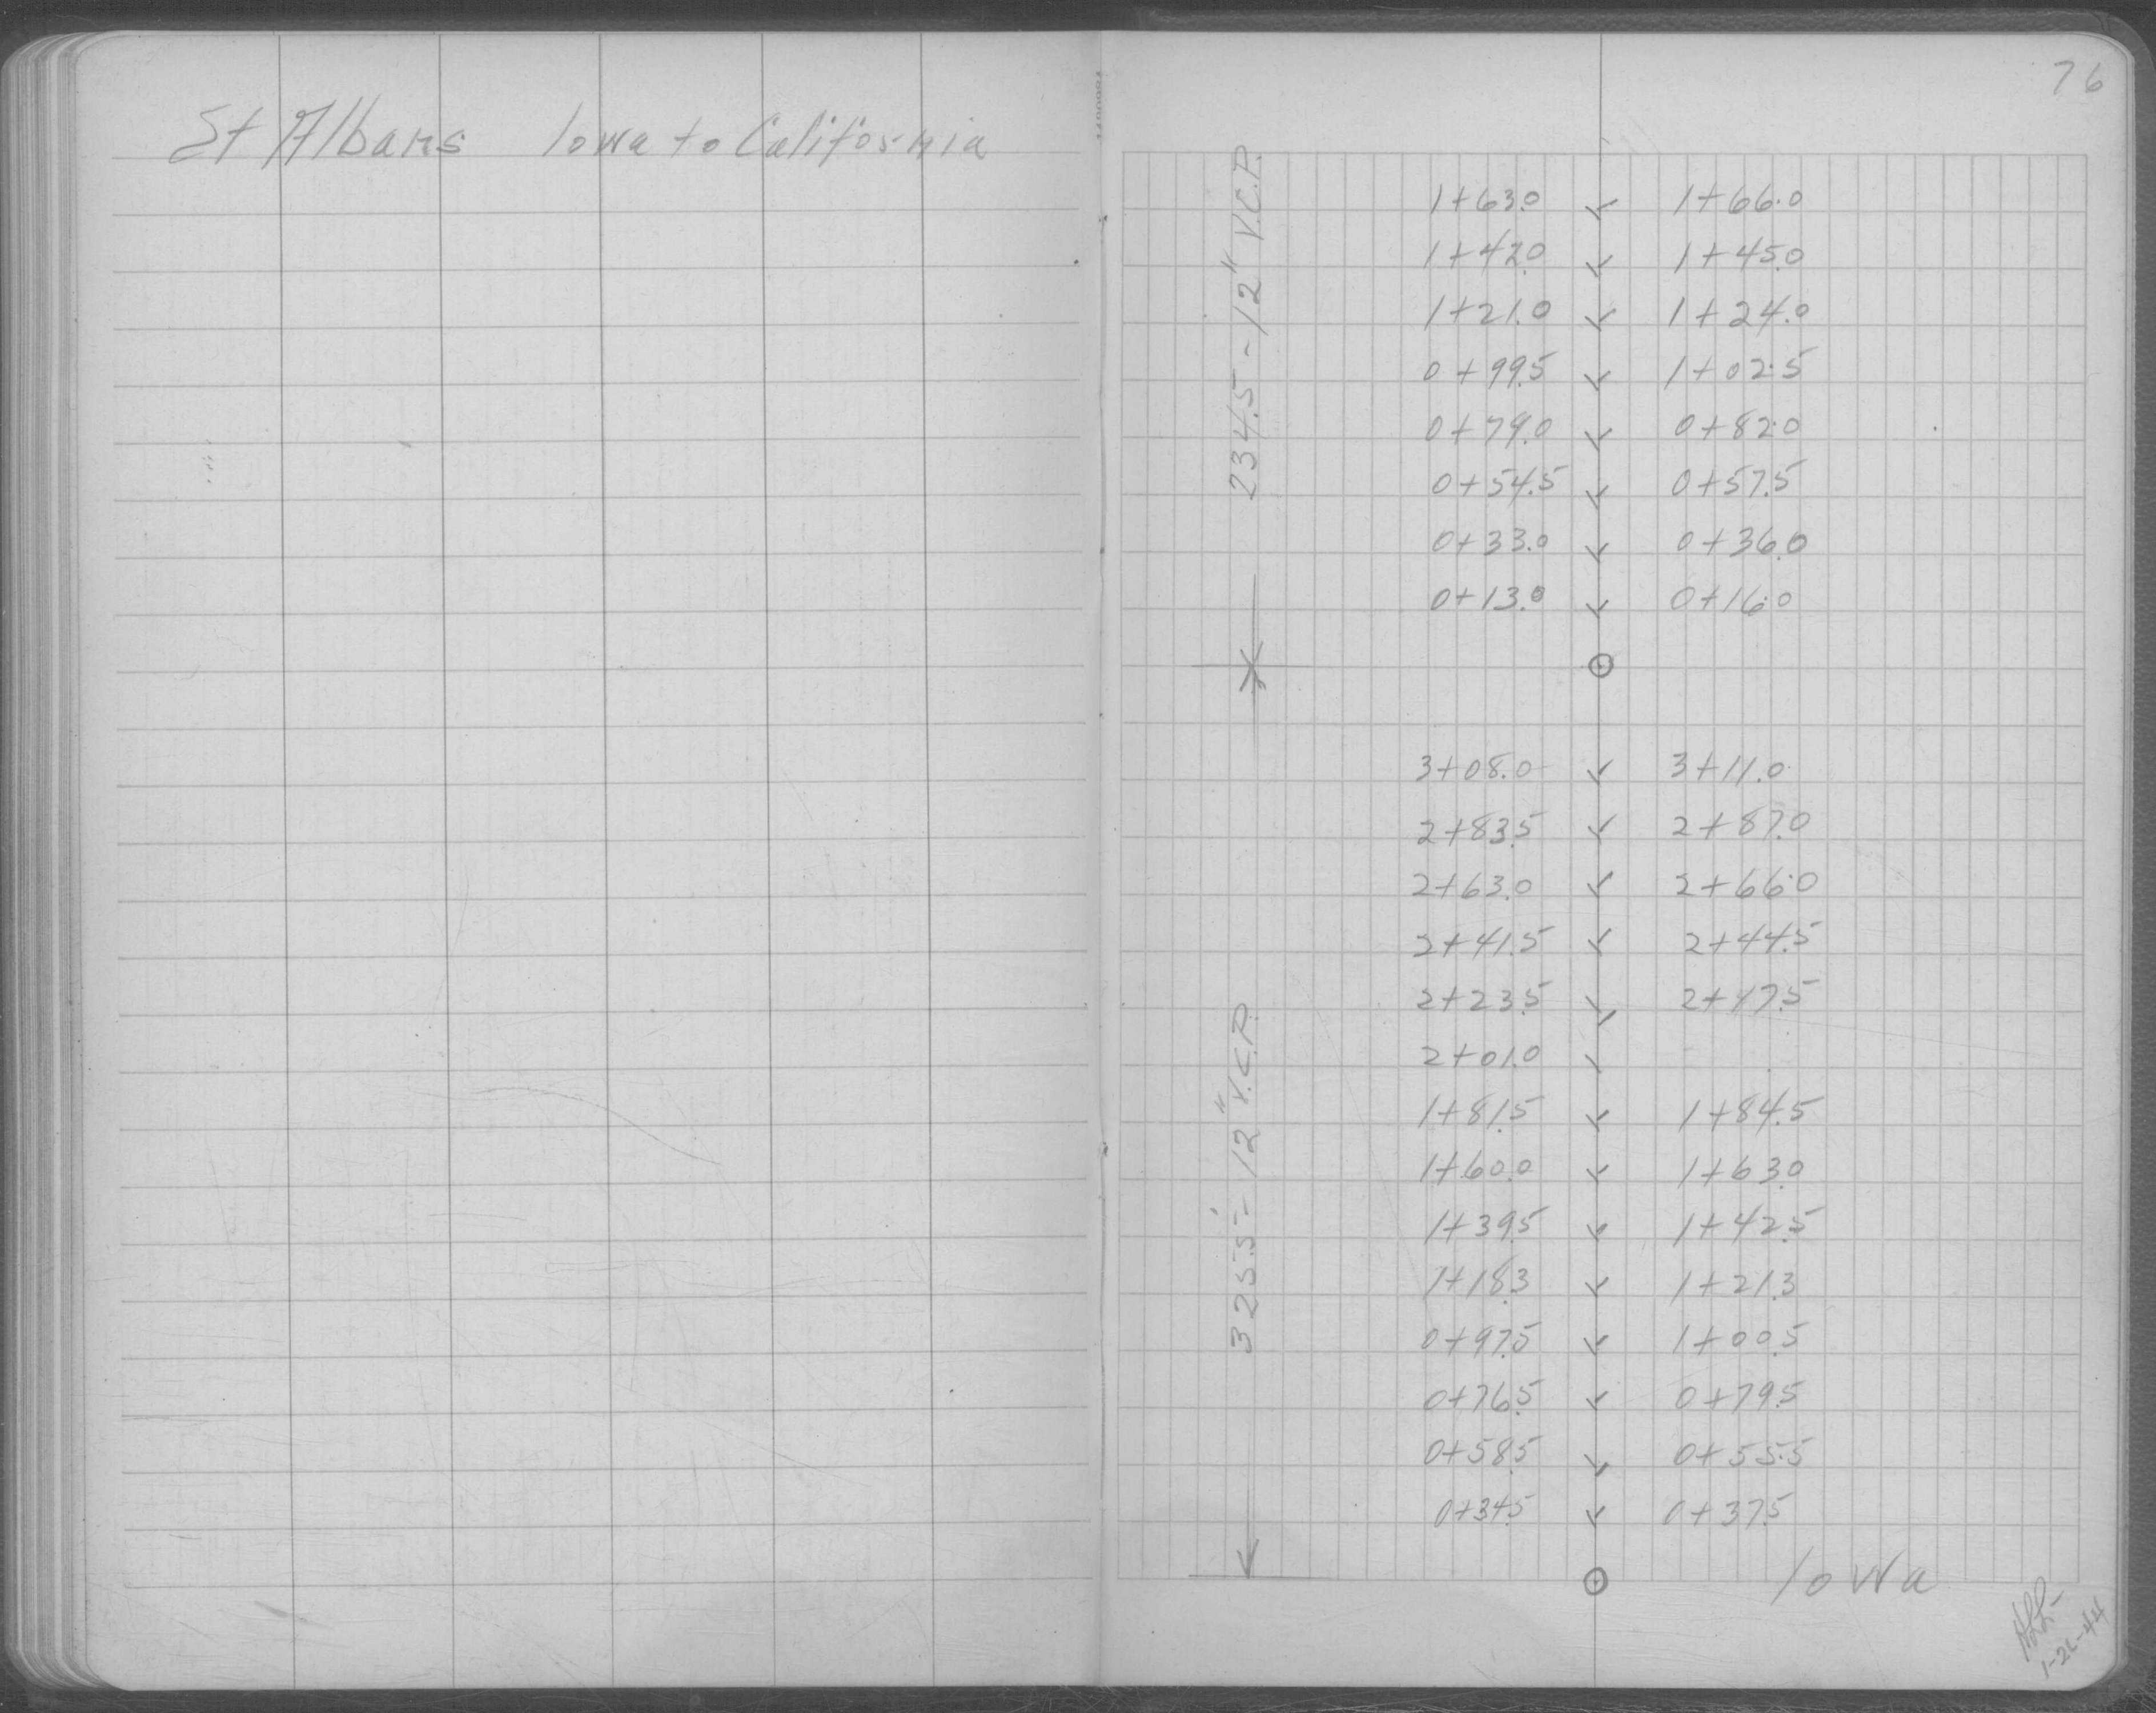 St Albans Iowa to California
76
234.5 - 12" V.C.P.
1+63.0 1+66.0
1+42.0 1+45.0
1+21.0 1+24.0
0+99.5 1+02.5
0+79.0 0+82.0
0+54.5 0+57.5
0+33.0 0+36.0
0+13.0 0+16.0
325.5' - 12" V.C.P.
3+08.0 3+11.0
2+83.5 2+87.0
2+63.0 2+66.0
2+41.5 2+44.5
2+23.5 2+17.5
2+01.0
1+81.5 1+84.5
1+60.0 1+63.0
1+39.5 1+42.5
1+18.3 1+21.3
0+97.5 1+00.5
0+76.5 0+79.5
0+58.5 0+55.5
0+34.5 0+37.5
Iowa
1-26-44